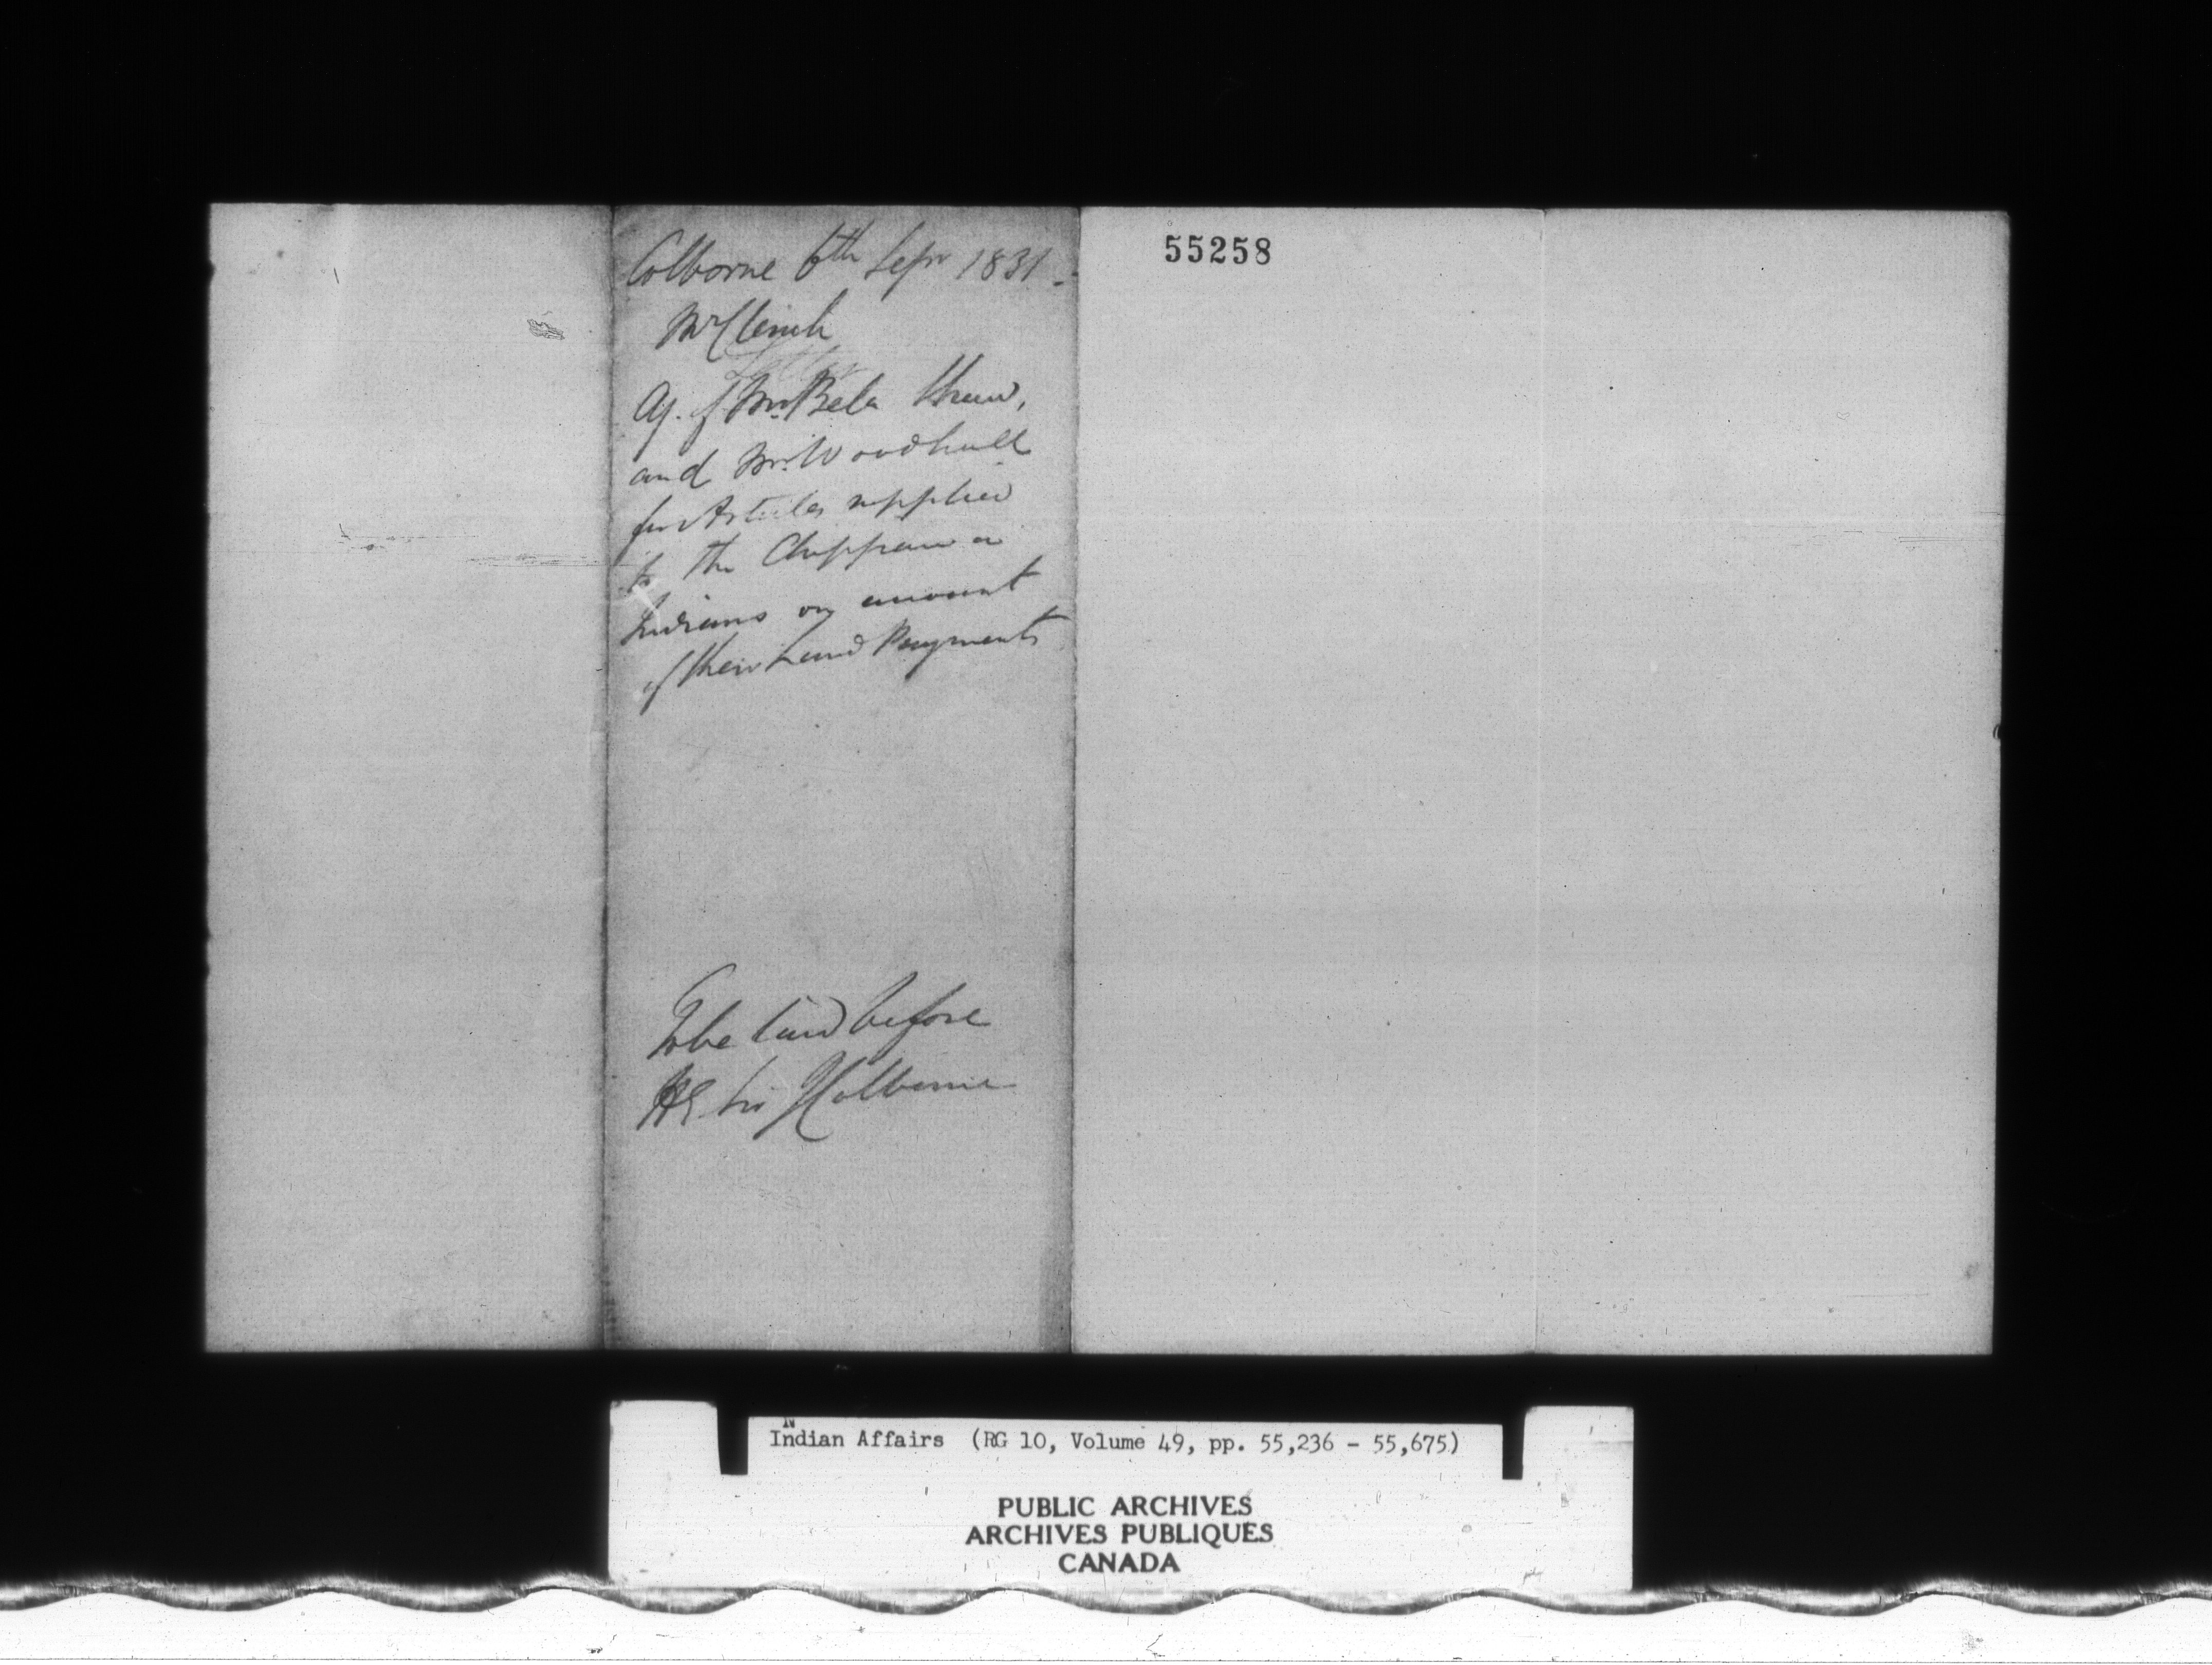 Colborne 6th Sepr 1831 -
Mr Clench
Letter
of Mr. Bela Shaw,
and Mr. Woodhull
for Articles supplied
to the Chippawa
Indians on account
of their Land Payments
To be laid before
HE Sir J Colborne
55258
Indian Affairs (RG 10, Volume 49, pp. 55,236 - 55,675)
PUBLIC ARCHIVES
ARCHIVES PUBLIQUES
CANADA